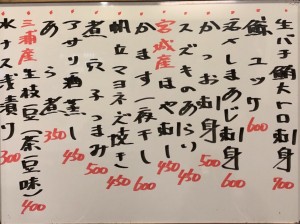 生バチ鮪大トロ刺身 900
鯨ユッケ 600
しまあじ刺身
かつお刺身 500
スズキのあらり 450
宮城産 ほや 450
かます一夜干し 600
帆立マヨネーズ焼き 450
煮穴子つまみ 500
アサリ酒蒸し 450
あら煮 350
三浦産 生枝豆(茶豆味) 400
水ナス浅漬り 300